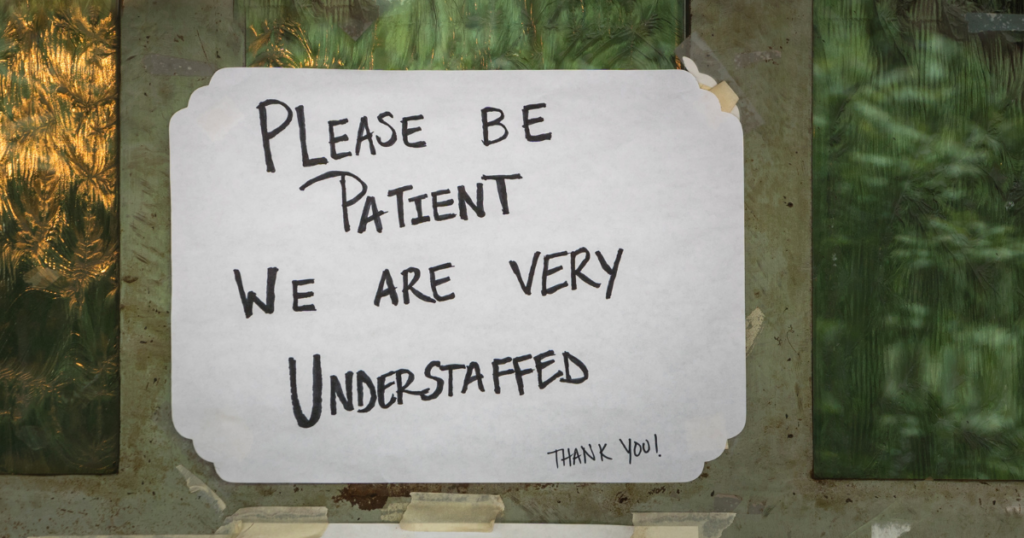 PLEASE BE
PATIENT
WE ARE VERY
UNDERSTAFFED
THANK YOU!